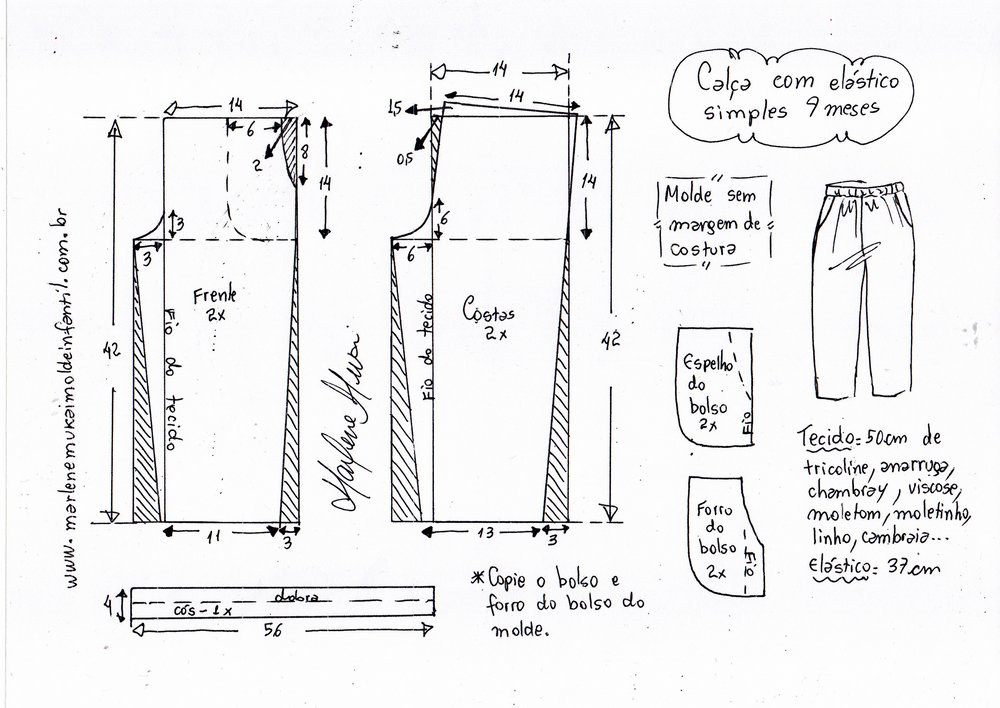 Calça com elástico
simples 9 meses
14
6
2
8
14
3
3
Frente
2x
Fio do tecido
42
11
3
14
14
1,5
0,5
14
6
6
Costas
2x
Fio do tecido
42
13
3
www.marlenemukaimoldeinfantil.com.br
Marlene Mukai
Molde sem
margem de
costura
Espelho
do
bolso
2x
Fio
Forro
do
bolso
2x
Fio
Tecido= 50cm de
tricoline, anarruga,
chambray, viscose,
moletom, moletinho,
linho, cambraia...
Elástico= 37cm
4
dobra
cós - 1x
56
*Copie o bolso e
forro do bolso do
molde.